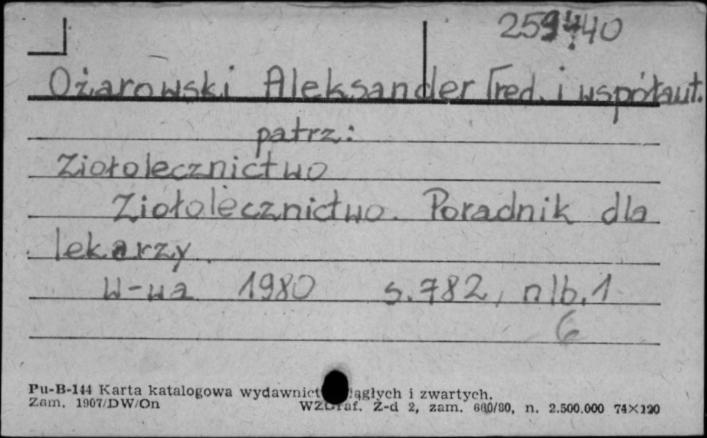 259440
Ożarowski Aleksander [red. i współaut.
patrz:
Ziołolecznictwo
Ziołolecznictwo. Poradnik dla
lekarzy
W-wa 1980 s.782, nlb.1
6
Pu-B-144 Karta katalogowa wydawnict ągłych i zwartych.
Zam. 1907/DW/On WZGraf. Z-d 2, zam. 600/80, n. 2.500.000 74×120